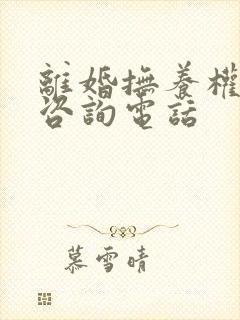 離婚撫養權
咨詢電話
慕雪晴